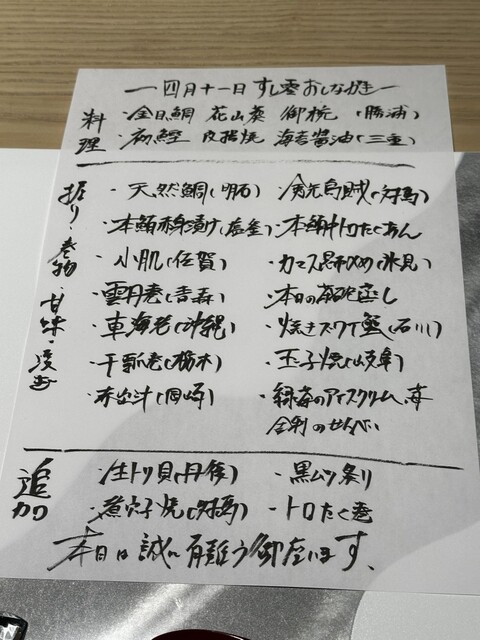 一四月十一日 すし雲おしながき一
料理
・金目鯛 花山葵 御椀 (勝浦)
・初鰹 皮揚焼 海苔醤油(三重)
握り・巻物・甘味・
・天然鯛(明石) ・剣先烏賊(対馬)
・本鮪赤身漬け(塩釜) ・本鮪中トロたくあん
・小肌(佐賀) ・カマス昆布〆(氷見)
・雲丹巻(青森) ・本日の 蒸し
・車海老(沖縄) ・焼きズワイ蟹(石川)
・干瓢巻(栃木) ・玉子焼(岐阜)
・赤出汁(岡崎) ・緑苺のアイスクリーム、苺
舎利のせんべい
追加
・生トリ貝(丹後) ・黒ムツ炙り
・煮穴子焼(対馬) ・トロたく巻
本日は誠に有難う御座います、